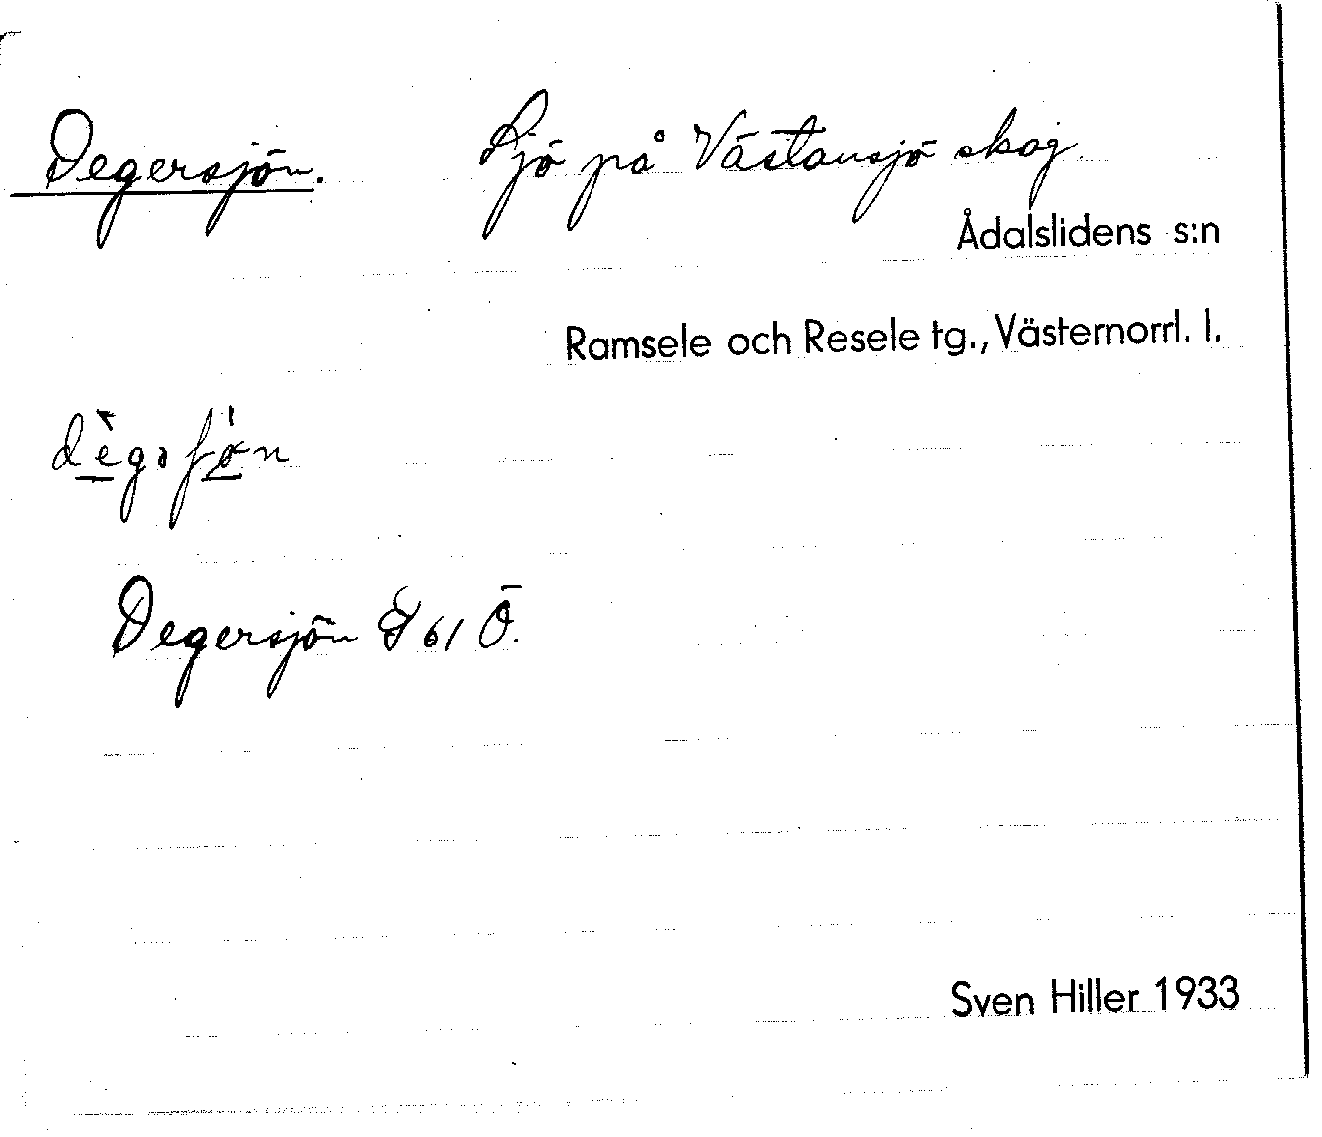 Degersjön. Sjö på Västansjö skog.
Ådalslidens s:n
Ramsele och Resele tg., Västernorrl. l.
Degersjön 61 Ö.
Sven Hiller 1933